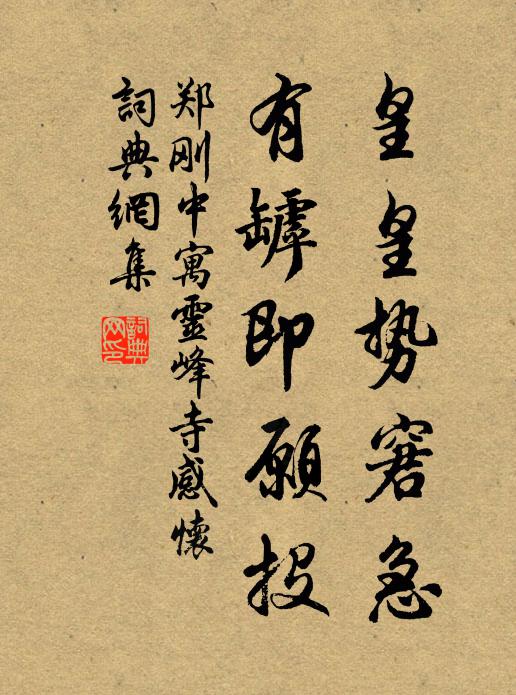 皇皇势窘急
有罅即愿投
郑刚中寓靈峰寺感懷
詞典網集
詞典网印